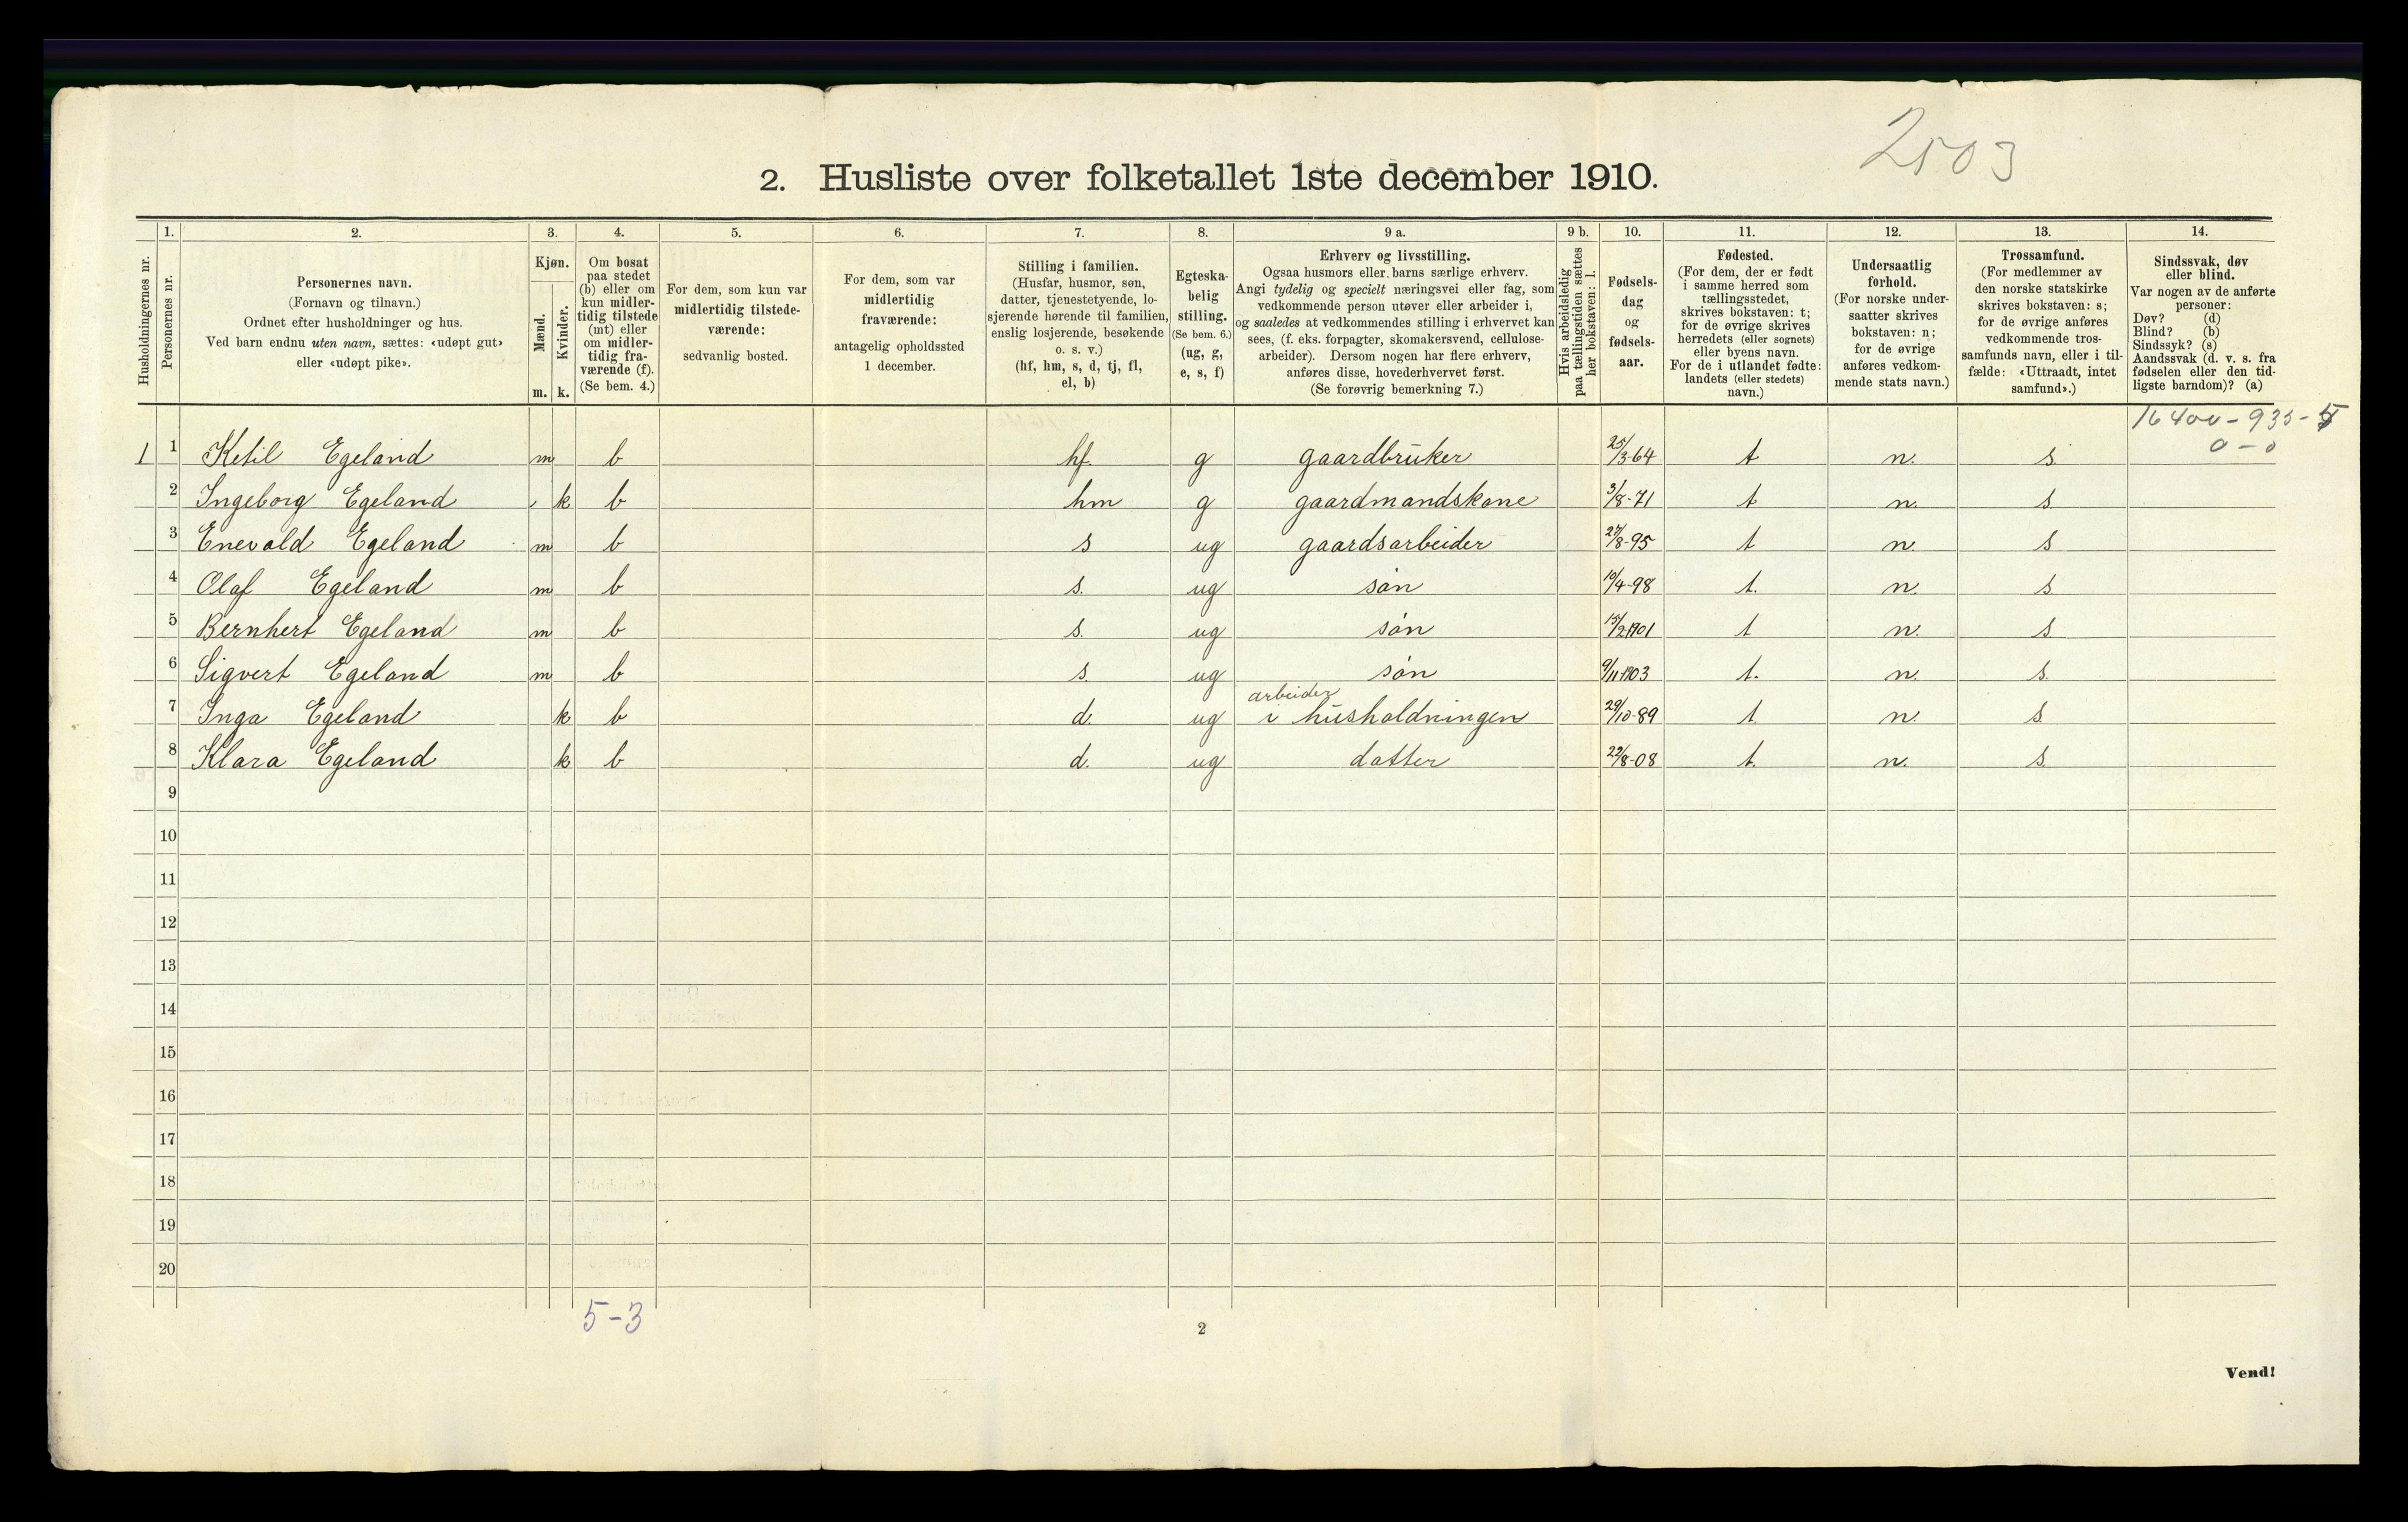 2503
2. Husliste over folketallet 1ste december 1910.
Husholdningernes nr.
1. Personernes nr.
2. Personernes navn.
(Fornavn og tilnavn.)
Ordnet efter husholdninger og hus.
Ved barn endnu uten navn, sættes: «udøpt gut»
eller «udøpt pike».
3. Kjøn.
Mænd. m.
Kvinder. k.
4. Om bosat
paa stedet
(b) eller om
kun midler-
tidig tilstede
(mt) eller
om midler-
tidig fra-
værende (f).
(Se bem. 4.)
5. For dem, som kun var
midlertidig tilstede-
værende:
sedvanlig bosted.
6. For dem, som var
midlertidig
fraværende:
antagelig opholdssted
1 december.
7. Stilling i familien.
(Husfar, husmor, søn,
datter, tjenestetyende, lo-
sjerende hørende til familien,
enslig losjerende, besøkende
o. s. v.)
(hf, hm, s, d, tj, fl,
el, b)
8. Egteska-
belig
stilling.
(Se bem. 6.)
(ug, g,
e, s, f)
9 a. Erhverv og livsstilling.
Ogsaa husmors eller barns særlige erhverv.
Angi tydelig og specielt næringsvei eller fag, som
vedkommende person utøver eller arbeider i,
og saaledes at vedkommendes stilling i erhvervet kan
sees, (f. eks. forpagter, skomakersvend, cellulose-
arbeider). Dersom nogen har flere erhverv,
anføres disse, hovederhvervet først.
(Se forøvrig bemerkning 7.)
9 b. Hvis arbeidsledig
paa tællingstiden sættes
her bokstaven: l.
10. Fødsels-
dag
og
fødsels-
aar.
11. Fødested.
(For dem, der er født
i samme herred som
tællingsstedet,
skrives bokstaven: t;
for de øvrige skrives
herredets (eller sognets)
eller byens navn.
For de i utlandet fødte:
landets (eller stedets)
navn.)
12. Undersaatlig
forhold.
(For norske under-
saatter skrives
bokstaven: n;
for de øvrige
anføres vedkom-
mende stats navn.)
13. Trossamfund.
(For medlemmer av
den norske statskirke
skrives bokstaven: s;
for de øvrige anføres
vedkommende tros-
samfunds navn, eller i til-
fælde: «Uttraadt, intet
samfund».)
14. Sindssvak, døv
eller blind.
Var nogen av de anførte
personer:
Døv? (d)
Blind? (b)
Sindssyk? (s)
Aandssvak (d. v. s. fra
fødselen eller den tid-
ligste barndom)? (a)
16400 - 935 - 5
0 - 0
1 1 Ketil Egeland m b hf. g gaardbruker 25/3-64 t n. s.
2 Ingeborg Egeland k b hm g gaardmandskone 3/8-71 t n. s.
3 Enevald Egeland m b s ug gaardsarbeider 27/8-95 t n. s
4 Olaf Egeland m b s. ug søn 10/4-98 t. n. s.
5 Bernhert Egeland m b s. ug søn 15/2-1901 t n. s
6 Sigvert Egeland m b s. ug søn 9/11-1903 t. n. s.
7 Inga Egeland k b d. ug arbeider i husholdningen 29/10-89 t n. s.
8 Klara Egeland k b d. ug datter 22/8-08 t. n. s.
9
10
11
12
13
14
15
16
17
18
19
20
5-3
2
Vend!